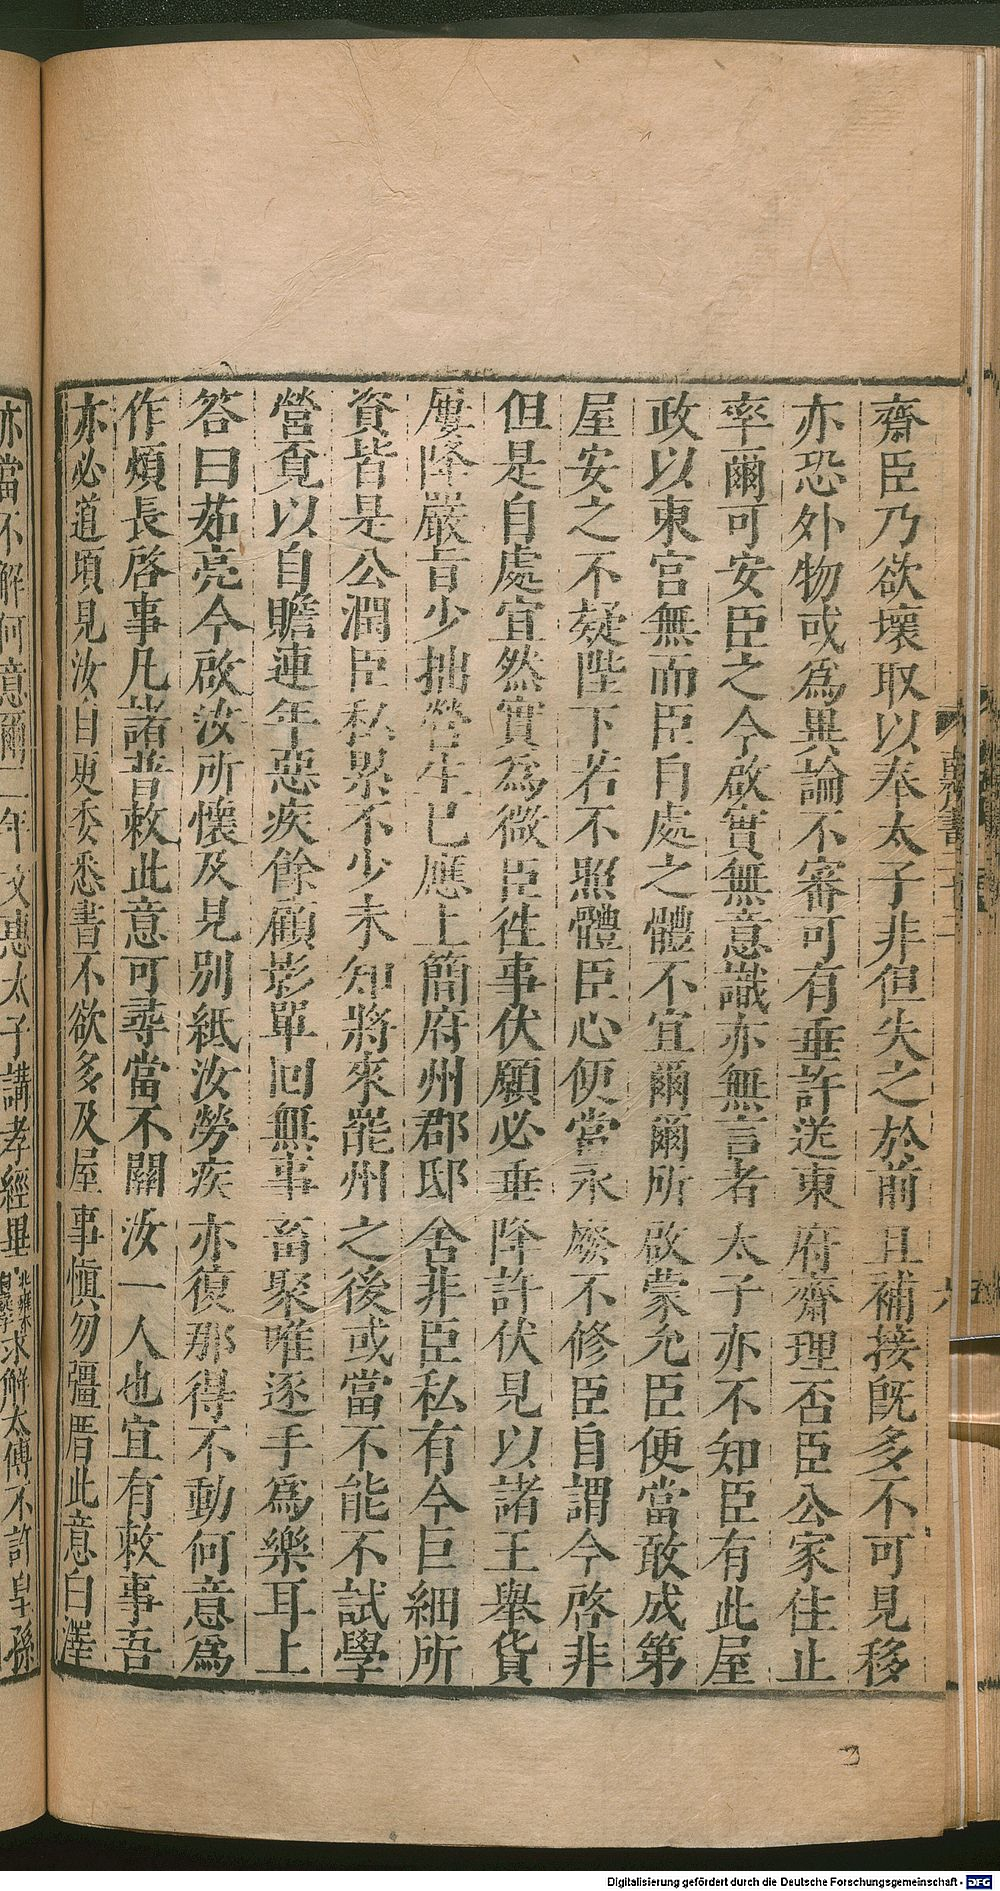 齋臣乃欲壞取以奉太子非但失之於前且補接旣多不可見移
亦恐外物或爲異論不審可有垂許送東府齋理否臣公家住止
率爾可安臣之今啟實無意識亦無言者太子亦不知臣有此屋
政以東宮無而臣自處之體不宜爾爾所啟蒙允臣便當敢成第
屋安之不疑陛下若不照體臣心便當永廢不修臣自謂今啓非
但是自處宜然實爲微臣徃事伏願必垂降許伏見以諸王舉貨
屢降嚴旨少拙營生已應上簡府州郡邸舍非臣私有今巨細所
資皆是公潤臣私累不少未知將來罷州之後或當不能不試學
營覔以自贍連年惡疾餘顧影單囘無事畜聚唯逐手爲樂耳上
答曰茹亮今啟汝所懷及見別紙汝勞疾亦復那得不動何意爲
作煩長啓事凡諸普敕此意可尋當不關汝一人也宜有敕事吾
亦必道頃見汝自更委悉書不欲多及屋事愼勿彊厝此意白澤
亦當不解何意爾二年文惠太子講孝經畢求解太傅不許皇孫
Digitalisierung gefördert durch die Deutsche Forschungsgemeinschaft - DFG